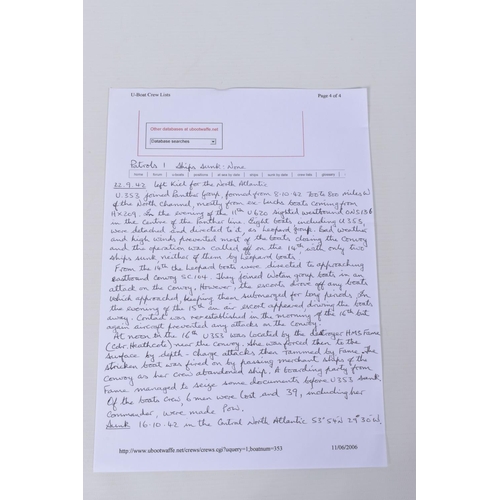 U-Boat Crew Lists Page 4 of 4
Other databases at ubootwaffe.net
Database searches
Patrols 1 Ships Sunk: None
22.9.42 Left Kiel for the North Atlantic
U.353 joined Panther Group, formed from 8.10.42 700 to 800 miles W
of the North Channel, mostly from ex-Luchs boats coming from
HX209. In the evening of the 11th U620 sighted westbound ONS136
in the centre of the Panther line. Eight boats including U353,
were detached and directed to it as Leopard group. Bad weather
and high winds prevented most of the boats closing the Convoy
and the operation was called off on the 14th with only two
ships sunk neither of them by Leopard boats
From the 14th the Leopard boats were directed to approaching
Eastbound Convoy SC.104. They joined Wotan group boats in an
attack on the Convoy. However, the escorts drove off any boats
which approached, keeping them submerged for long periods. In
the evening of the 15th an air escort appeared driving the boats
away. Contact was re-established in the morning of the 16th but
again aircraft prevented any attacks on the Convoy.
At noon on the 16th U353 was located by the destroyer HMS Fame
(Cdr. Heathcote) near the convoy. She was forced then to the
surface by depth-charge attacks then rammed by Fame. The
stricken boat was fired on by passing merchant ships of the
Convoy as her crew abandoned ship. A boarding party from
Fame managed to seize some documents before U353 sank.
Of the boats crew, 6 men were lost and 39, including her
Commander, were made PoWs.
Sunk 16.10.42 in the Central North Atlantic 53°54N 29°30W.
http://www.ubootwaffe.net/crews/crews.cgi?uquery=1;boatnum=353 11/06/2006